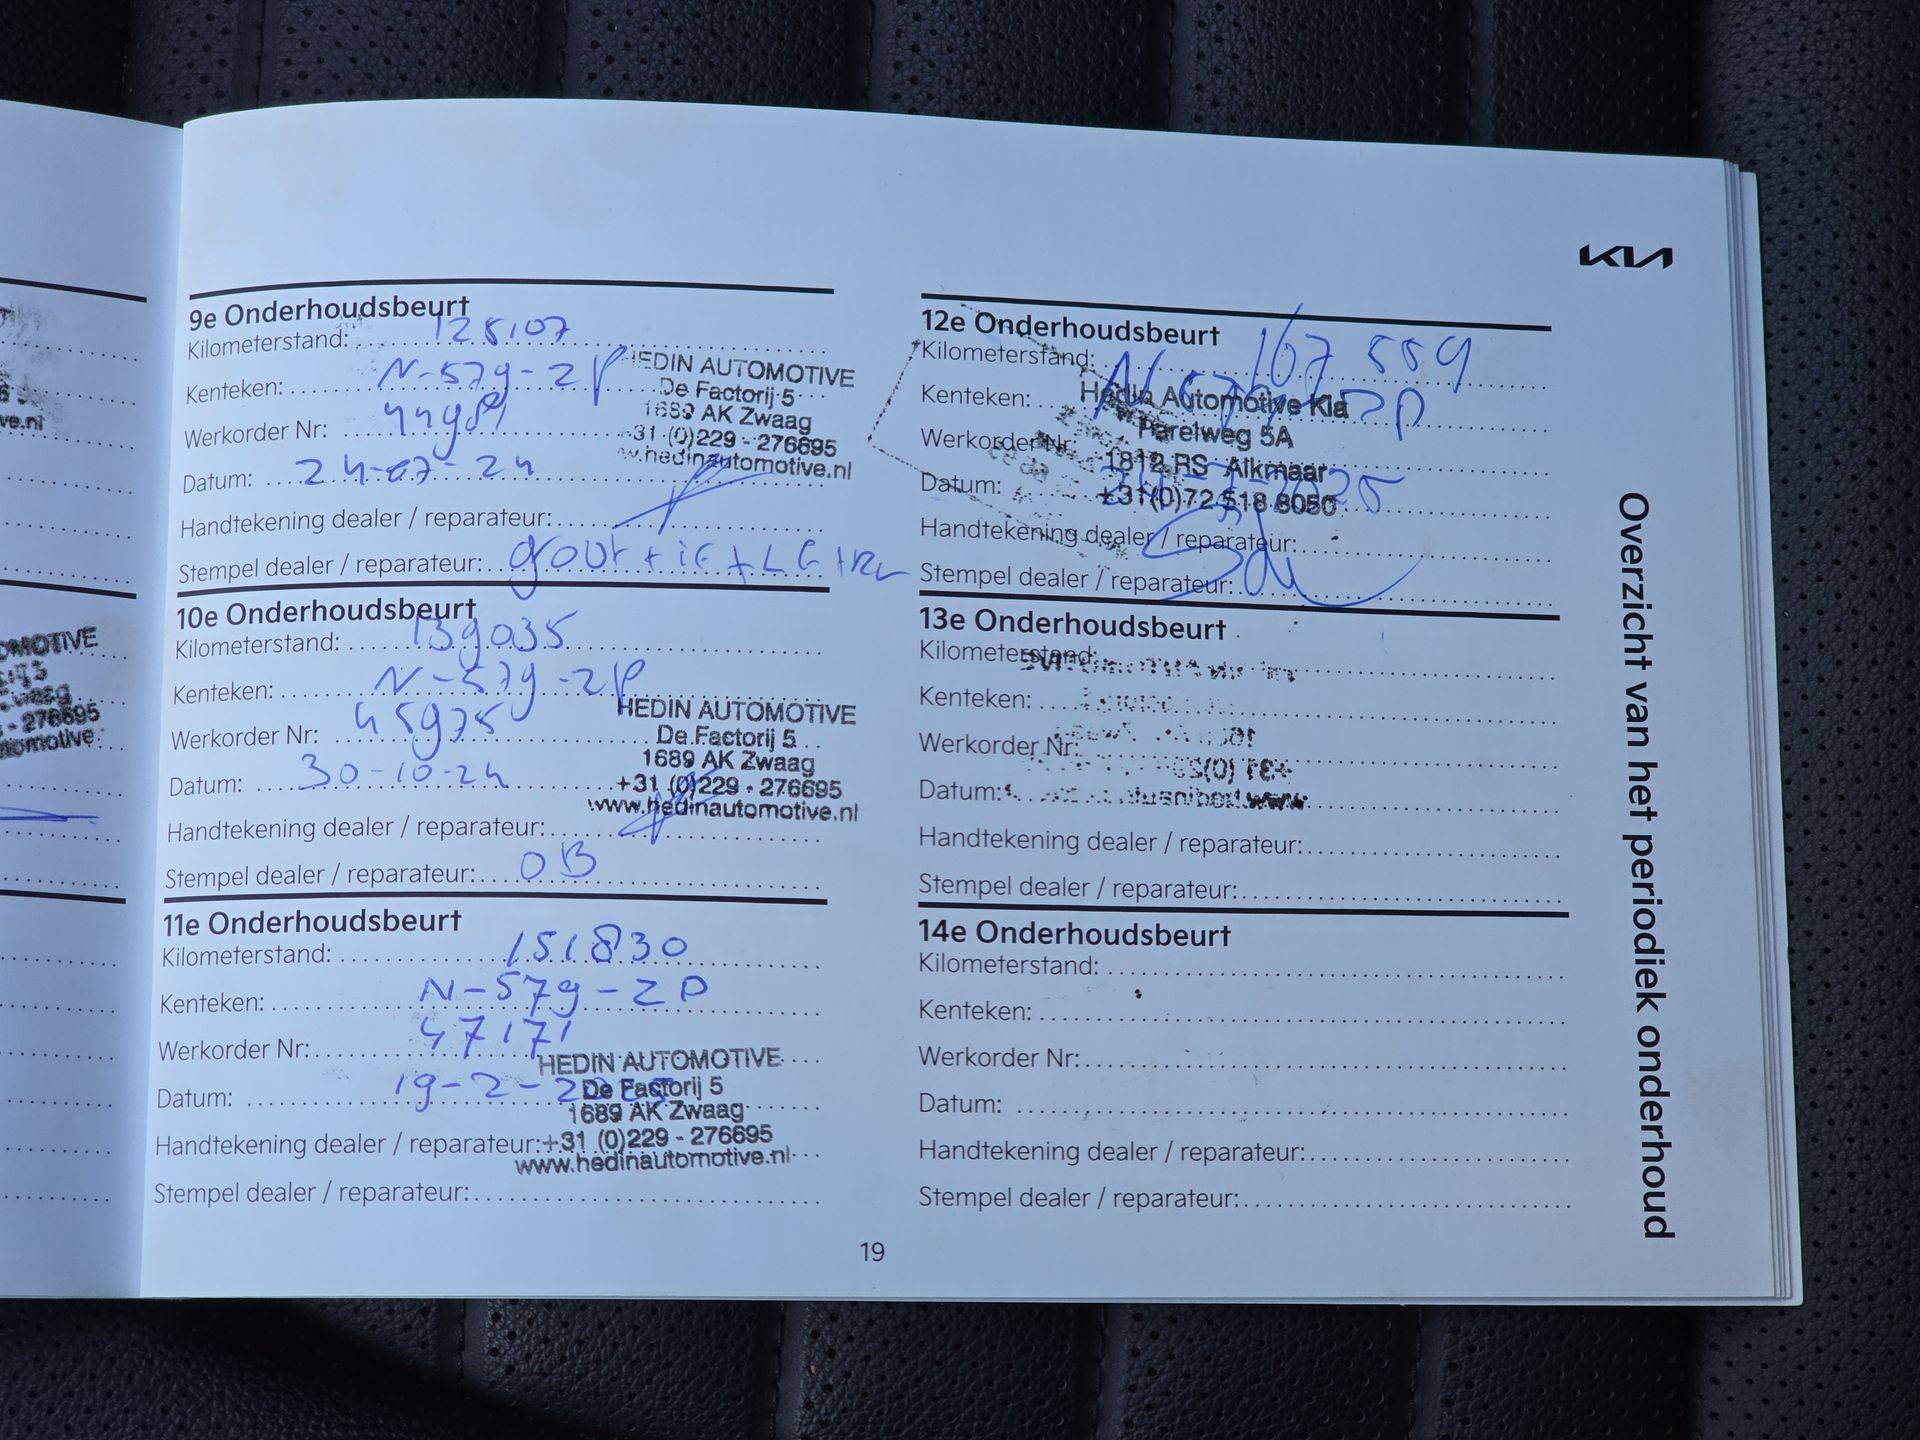 KIA
9e Onderhoudsbeurt
Kilometerstand: 128107
Kenteken: N-579-2P
Werkorder Nr:
Datum: 24-07-24
Handtekening dealer / reparateur:
Stempel dealer / reparateur:
HEDIN AUTOMOTIVE
De Factorij 5
1689 AK Zwaag
31 (0)229 - 276695
w.hedinautomotive.nl
10e Onderhoudsbeurt
Kilometerstand: 139035
Kenteken: N-579-2P
Werkorder Nr: 45975
Datum: 30-10-24
Handtekening dealer / reparateur:
Stempel dealer / reparateur: OB
HEDIN AUTOMOTIVE
De Factorij 5
1689 AK Zwaag
+31 (0)229 - 276695
www.hedinautomotive.nl
11e Onderhoudsbeurt
Kilometerstand: 151830
Kenteken: N-579-2P
Werkorder Nr: 47171
Datum: 19-2-2025
Handtekening dealer / reparateur:
Stempel dealer / reparateur:
HEDIN AUTOMOTIVE
De Factorij 5
1689 AK Zwaag
+31 (0)229 - 276695
www.hedinautomotive.nl
12e Onderhoudsbeurt
Kilometerstand: 167 559
Kenteken: N-579-2P
Werkorder Nr:
Datum:
Handtekening dealer / reparateur:
Stempel dealer / reparateur:
Hedin Automotive Kia
Parelweg 5A
1812 RS Alkmaar
+31(0)72 518 8050
13e Onderhoudsbeurt
Kilometerstand:
Kenteken:
Werkorder Nr:
Datum:
Handtekening dealer / reparateur:
Stempel dealer / reparateur:
14e Onderhoudsbeurt
Kilometerstand:
Kenteken:
Werkorder Nr:
Datum:
Handtekening dealer / reparateur:
Stempel dealer / reparateur:
Overzicht van het periodiek onderhoud
19
OMOTIVE
- 276695